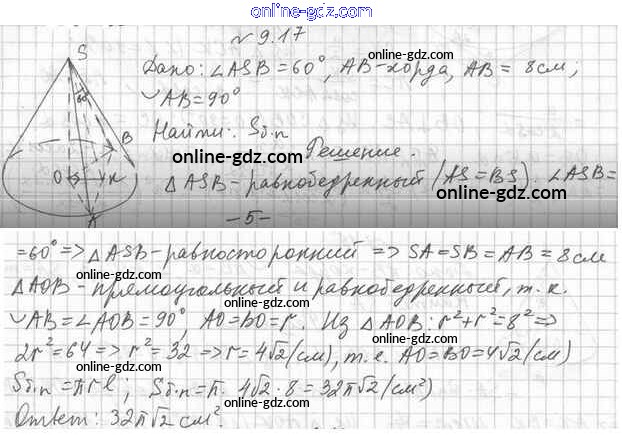 online-gdz.com
№ 9.17
S
60°
B
O
K
A
Дано: ∠ASB=60°, AB-хорда, AB = 8см;
online-gdz.com
◡AB=90°
Найти: Sб.п
online-gdz.com
Решение.
online-gdz.com
△ASB-равнобедренный (AS=BS). ∠ASB=
online-gdz.com
-5-
online-gdz.com
=60°=>△ASB-равносторонний => SA=SB=AB=8см
online-gdz.com
△AOB-прямоугольный и равнобедренный, т.к.
online-gdz.com
◡AB=∠AOB=90°, AO=BO=r. Из △AOB: r²+r²=8²=>
online-gdz.com
2r²=64=>r²=32=>r=4√2(см), т.е. AO=BO=4√2(см)
online-gdz.com
Sб.п=πrl; Sб.п=π·4√2·8=32π√2(см²)
online-gdz.com
Ответ: 32π√2 см².
online-gdz.com